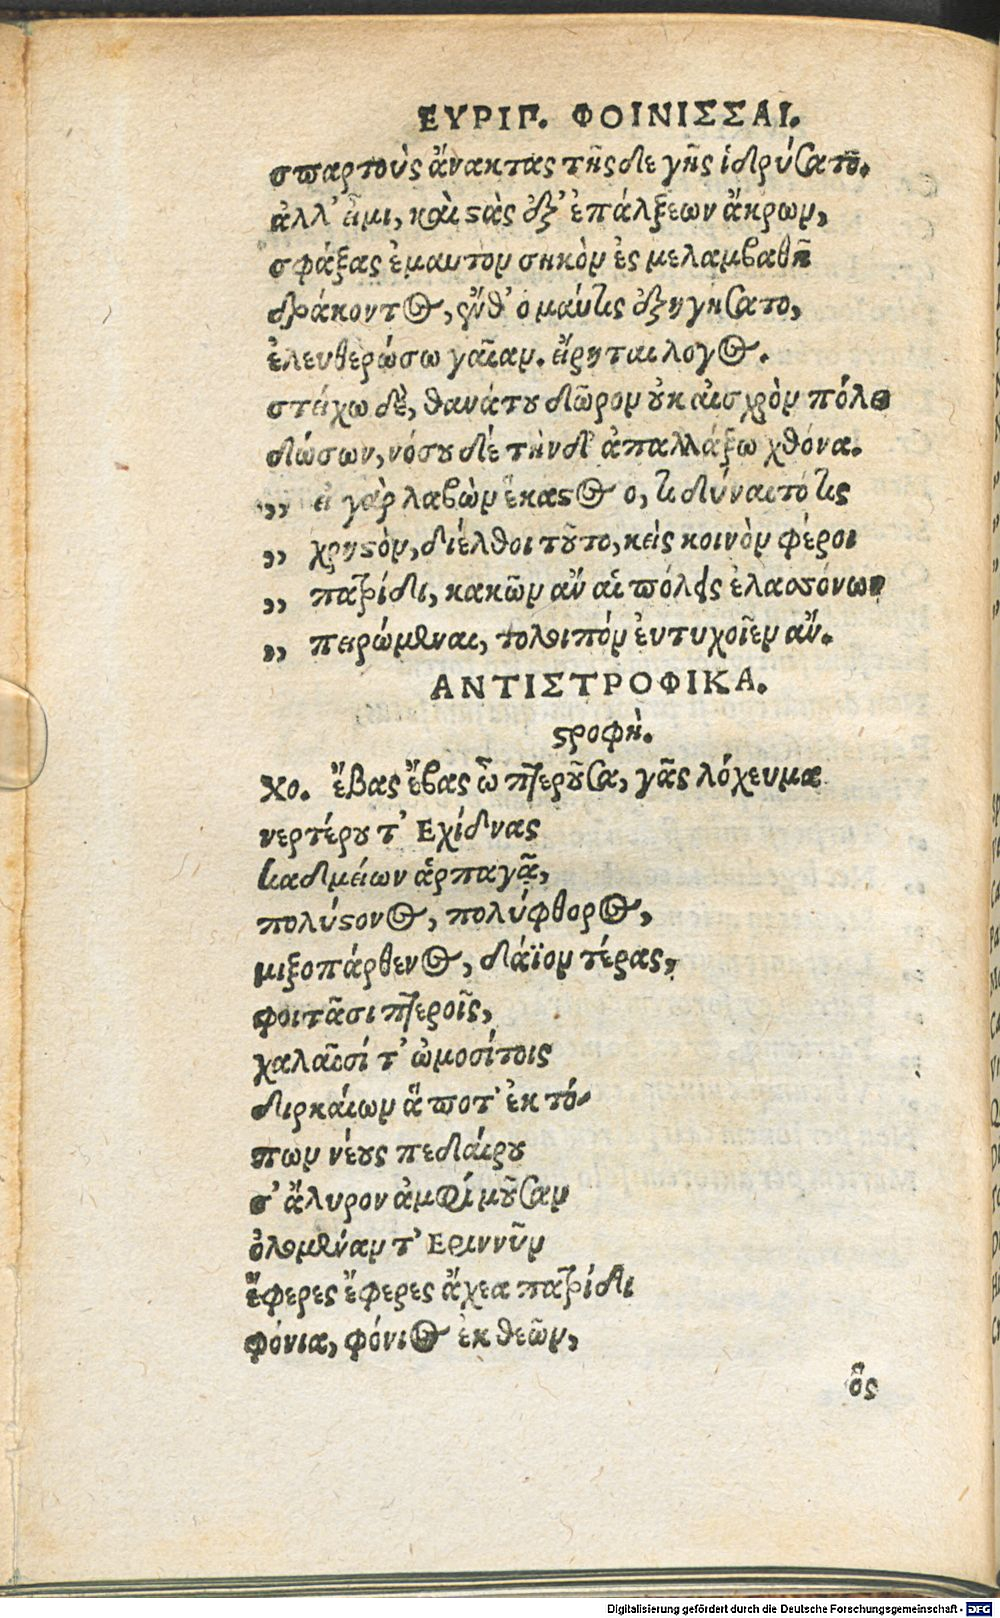 ΕΥΡΙΠ. ΦΟΙΝΙΣΣΑΙ.
σπαρτοὺς ἄνακτας τῆσδε γῆς ἱδρύσατο.
ἀλλ' εἶμι, καὶ στὰς ἐξ ἐπάλξεων ἄκρων,
σφάξας ἐμαυτον σηκὸν ἐς μελαμβαθῆ
δράκοντος, ἔνθ' ο μάντις ἐξηγησατο,
ἐλευθερώσω γαῖαν. εἴρηται λογος.
στείχω δὲ, θανάτου δῶρον οὐκ αἰσχρὸν πόλει
δώσων, νόσου δέ τὴνδ' ἀπαλλάξω χθόνα.
,, εἰ γὰρ λαβὼν ἕκαστος ο, τι δύναιτό τις
,, χρηστὸν, διέλθοι τοῦτο, κεἰς κοινὸν φέροι
,, πατρίδι, κακῶν ἂν αἱ πόλεις ἐλασσόνων
,, πειρώμεναι, τολοιπόν ἐυτυχοῖεν ἄν.
ΑΝΤΙΣΤΡΟΦΙΚΑ.
στροφὴ.
Χο. ἔβας ἔβας ὦ πτεροῦσα, γᾶς λόχευμα
νερτέρου τ' Εχίδνας
καδμείων ἁρπαγᾶ,
πολύστονος, πολύφθορος,
μιξοπάρθενος, δάϊον τέρας,
φοιτᾶσι πτεροῖς,
χαλαῖσί τ' ὠμοσίτοις
διρκαίων ἅ ποτ' ἐκ τό-
πων νέους πεδαίρου
σ' ἄλυρον ἀμφὶ μοῦσαν
ὀλομέναν τ' Εριννῦν
ἔφερες ἔφερες ἄχεα πατρίδι
φόνια, φόνιος ἐκ θεῶν,
ὃς
Digitalisierung gefördert durch die Deutsche Forschungsgemeinschaft - DFG